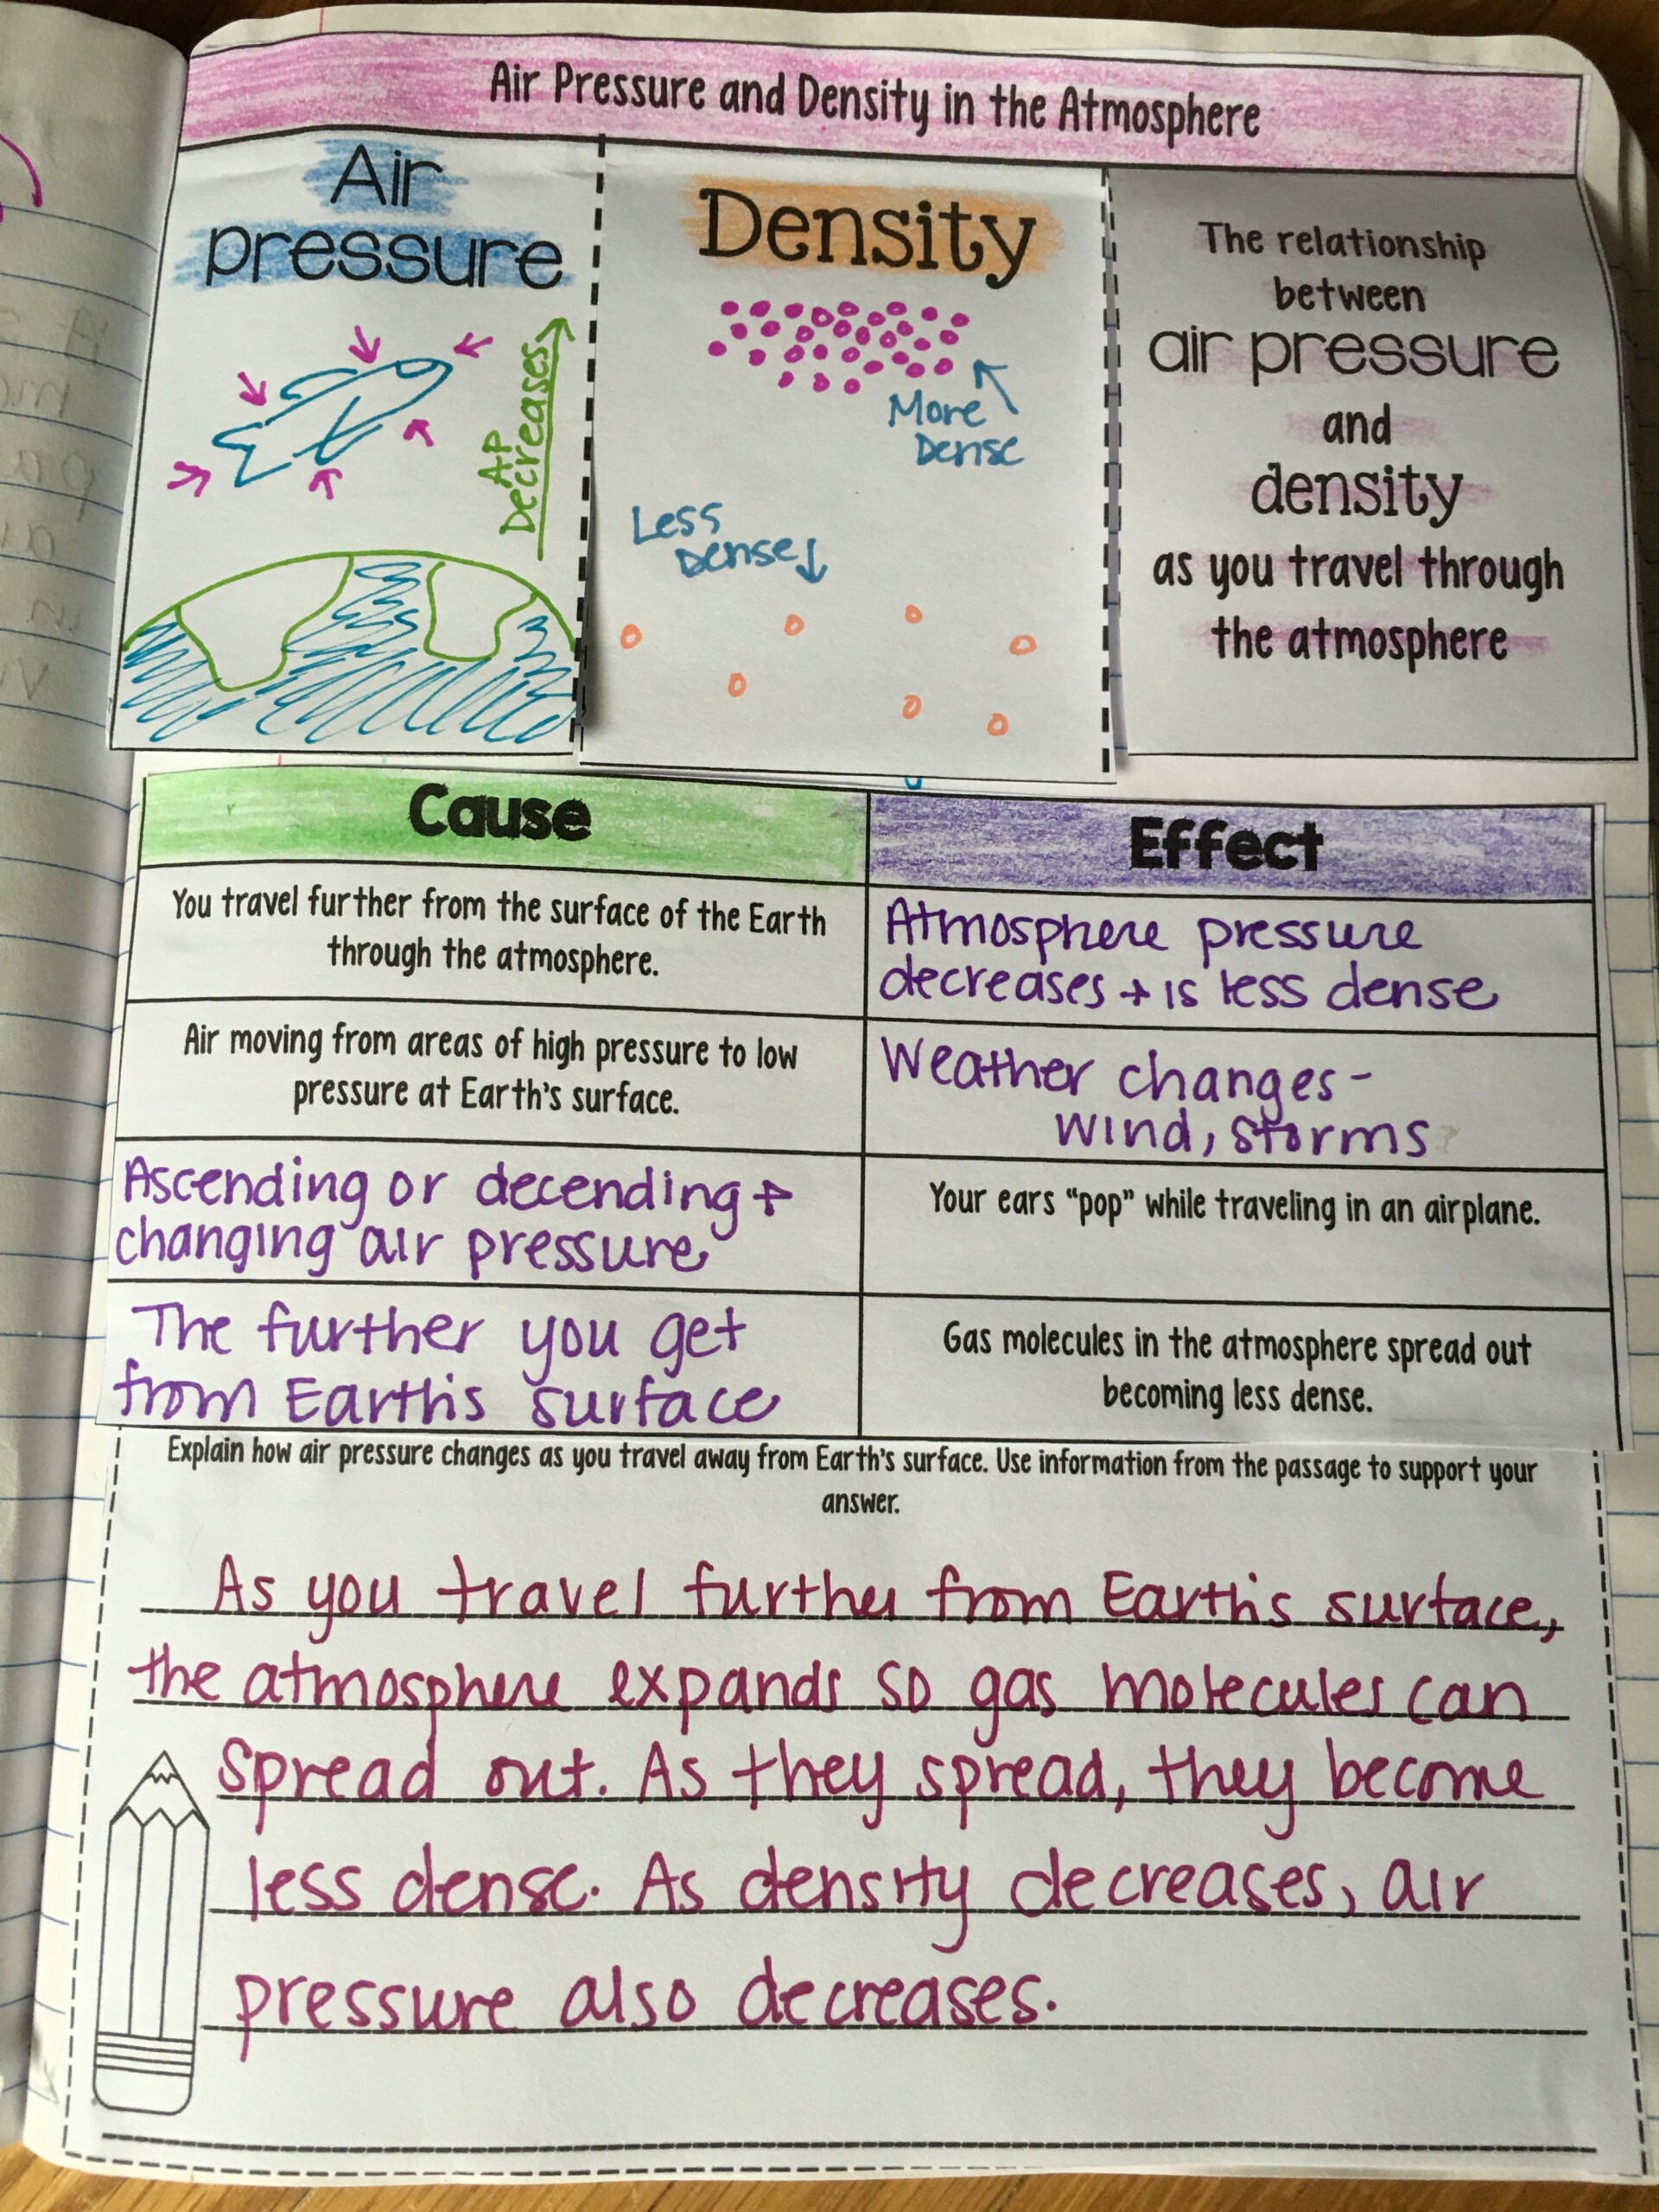 Air Pressure and Density in the Atmosphere
Air
pressure
AP
Decreases
Density
More
Dense
Less
Dense
The relationship
between
air pressure
and
density
as you travel through
the atmosphere
Cause
Effect
You travel further from the surface of the Earth
through the atmosphere.
Atmosphere pressure
decreases + is less dense
Air moving from areas of high pressure to low
pressure at Earth's surface.
Weather changes-
wind, storms
Ascending or decending +
changing air pressure
Your ears "pop" while traveling in an airplane.
The further you get
from Earth's surface
Gas molecules in the atmosphere spread out
becoming less dense.
Explain how air pressure changes as you travel away from Earth's surface. Use information from the passage to support your
answer.
As you travel further from Earth's surface,
the atmosphere expands so gas molecules can
spread out. As they spread, they become
less dense. As density decreases, air
pressure also decreases.